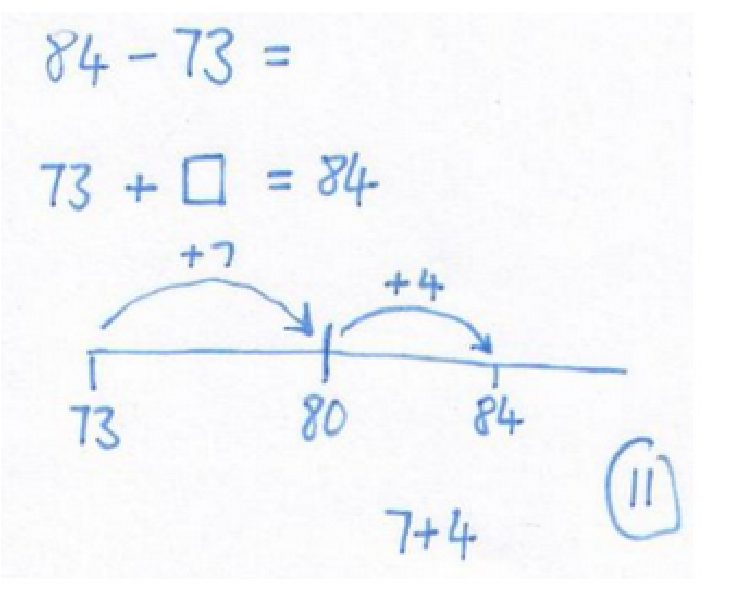 84 - 73 =
73 + □ = 84
+7 +4
73 80 84
11
7+4